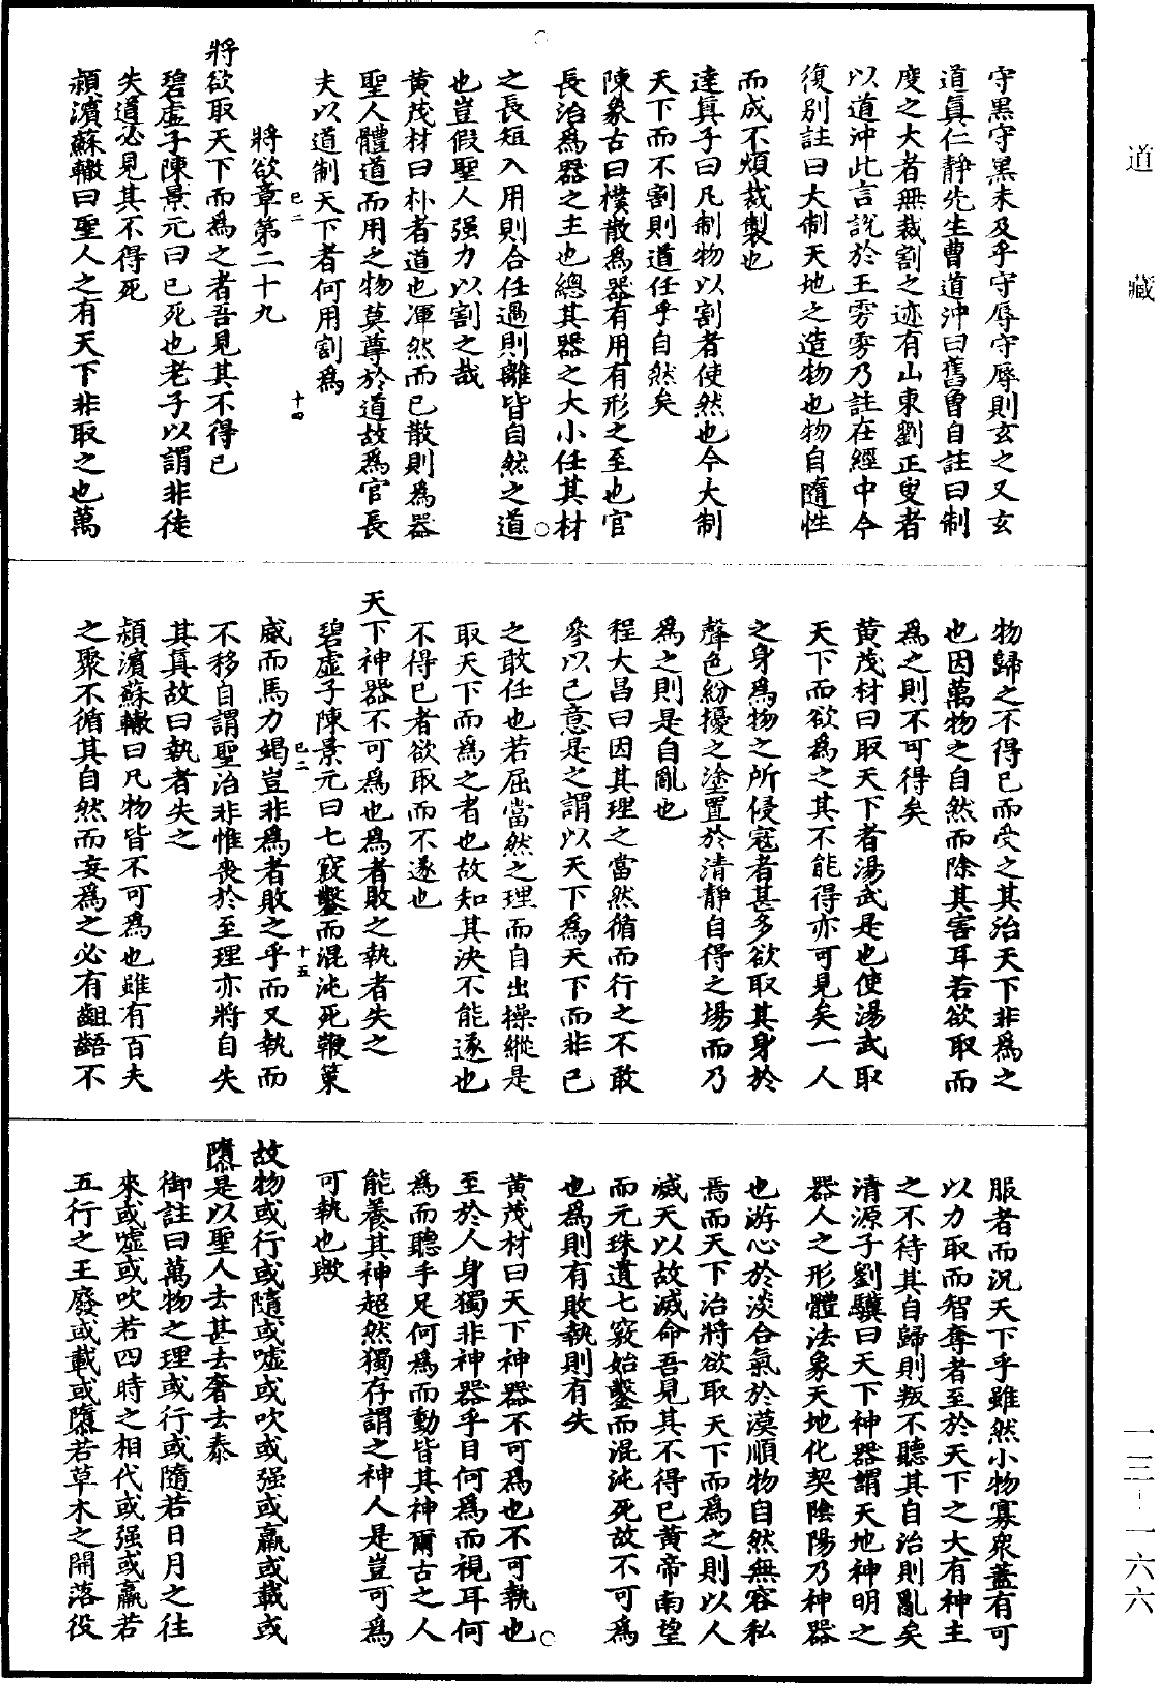 道藏
一三-一六六
守黑守黑未及乎守辱守辱則玄之又玄
道眞仁静先生曹道沖曰舊魯自註曰制
度之大者無裁割之迹有山東劉正叟者
以道沖此言說於王雱雱乃註在經中今
復別註曰大制天地之造物也物自隨性
而成不煩裁製也
達眞子曰凡制物以割者使然也今大制
天下而不割則道任乎自然矣
陳象古曰樸散爲器有用有形之至也官
長治爲器之主也總其器之大小任其材
之長短入用則合任過則離皆自然之道
也豈假聖人强力以割之哉
黄茂材曰朴者道也渾然而已散則爲器
聖人體道而用之物莫尊於道故爲官長
夫以道制天下者何用割爲
將欲章第二十九
已二
十四
將欲取天下而爲之者吾見其不得已
碧虛子陳景元曰已死也老子以謂非徒
失道必見其不得死
頴濱蘇轍曰聖人之有天下非取之也萬
物歸之不得已而受之其治天下非爲之
也因萬物之自然而除其害耳若欲取而
爲之則不可得矣
黄茂材曰取天下者湯武是也使湯武取
天下而欲爲之其不能得亦可見矣一人
之身爲物之所侵寇者甚多欲取其身於
聲色紛擾之塗置於清靜自得之場而乃
爲之則是自亂也
程大昌曰因其理之當然循而行之不敢
參以己意是之謂以天下爲天下而非己
之敢任也若屈當然之理而自出操縱是
取天下而爲之者也故知其決不能遂也
不得已者欲取而不遂也
天下神器不可爲也爲者敗之執者失之
碧虛子陳景元曰七竅鑿而混沌死鞭策
威而馬力竭豈非爲者敗之乎而又執而
已二
十五
不移自謂聖治非惟喪於至理亦將自失
其眞故曰執者失之
頴濱蘇轍曰凡物皆不可爲也雖有百夫
之聚不循其自然而妄爲之必有齟齬不
服者而況天下乎雖然小物寡衆蓋有可
以力取而智奪者至於天下之大有神主
之不待其自歸則叛不聽其自治則亂矣
清源子劉驥曰天下神器謂天地神明之
器人之形體法象天地化契陰陽乃神器
也游心於淡合氣於漠順物自然無容私
焉而天下治將欲取天下而爲之則以人
滅天以故滅命吾見其不得已黄帝南望
而元珠遺七竅始鑿而混沌死故不可爲
也爲則有敗執則有失
黄茂材曰天下神器不可爲也不可執也
至於人身獨非神器乎目何爲而視耳何
爲而聽手足何爲而動皆其神爾古之人
能養其神超然獨存謂之神人是豈可爲
可執也歟
故物或行或隨或噓或吹或强或羸或載或
隳是以聖人去甚去奢去泰
御註曰萬物之理或行或隨若日月之往
來或噓或吹若四時之相代或强或羸若
五行之王廢或載或隳若草木之開落役